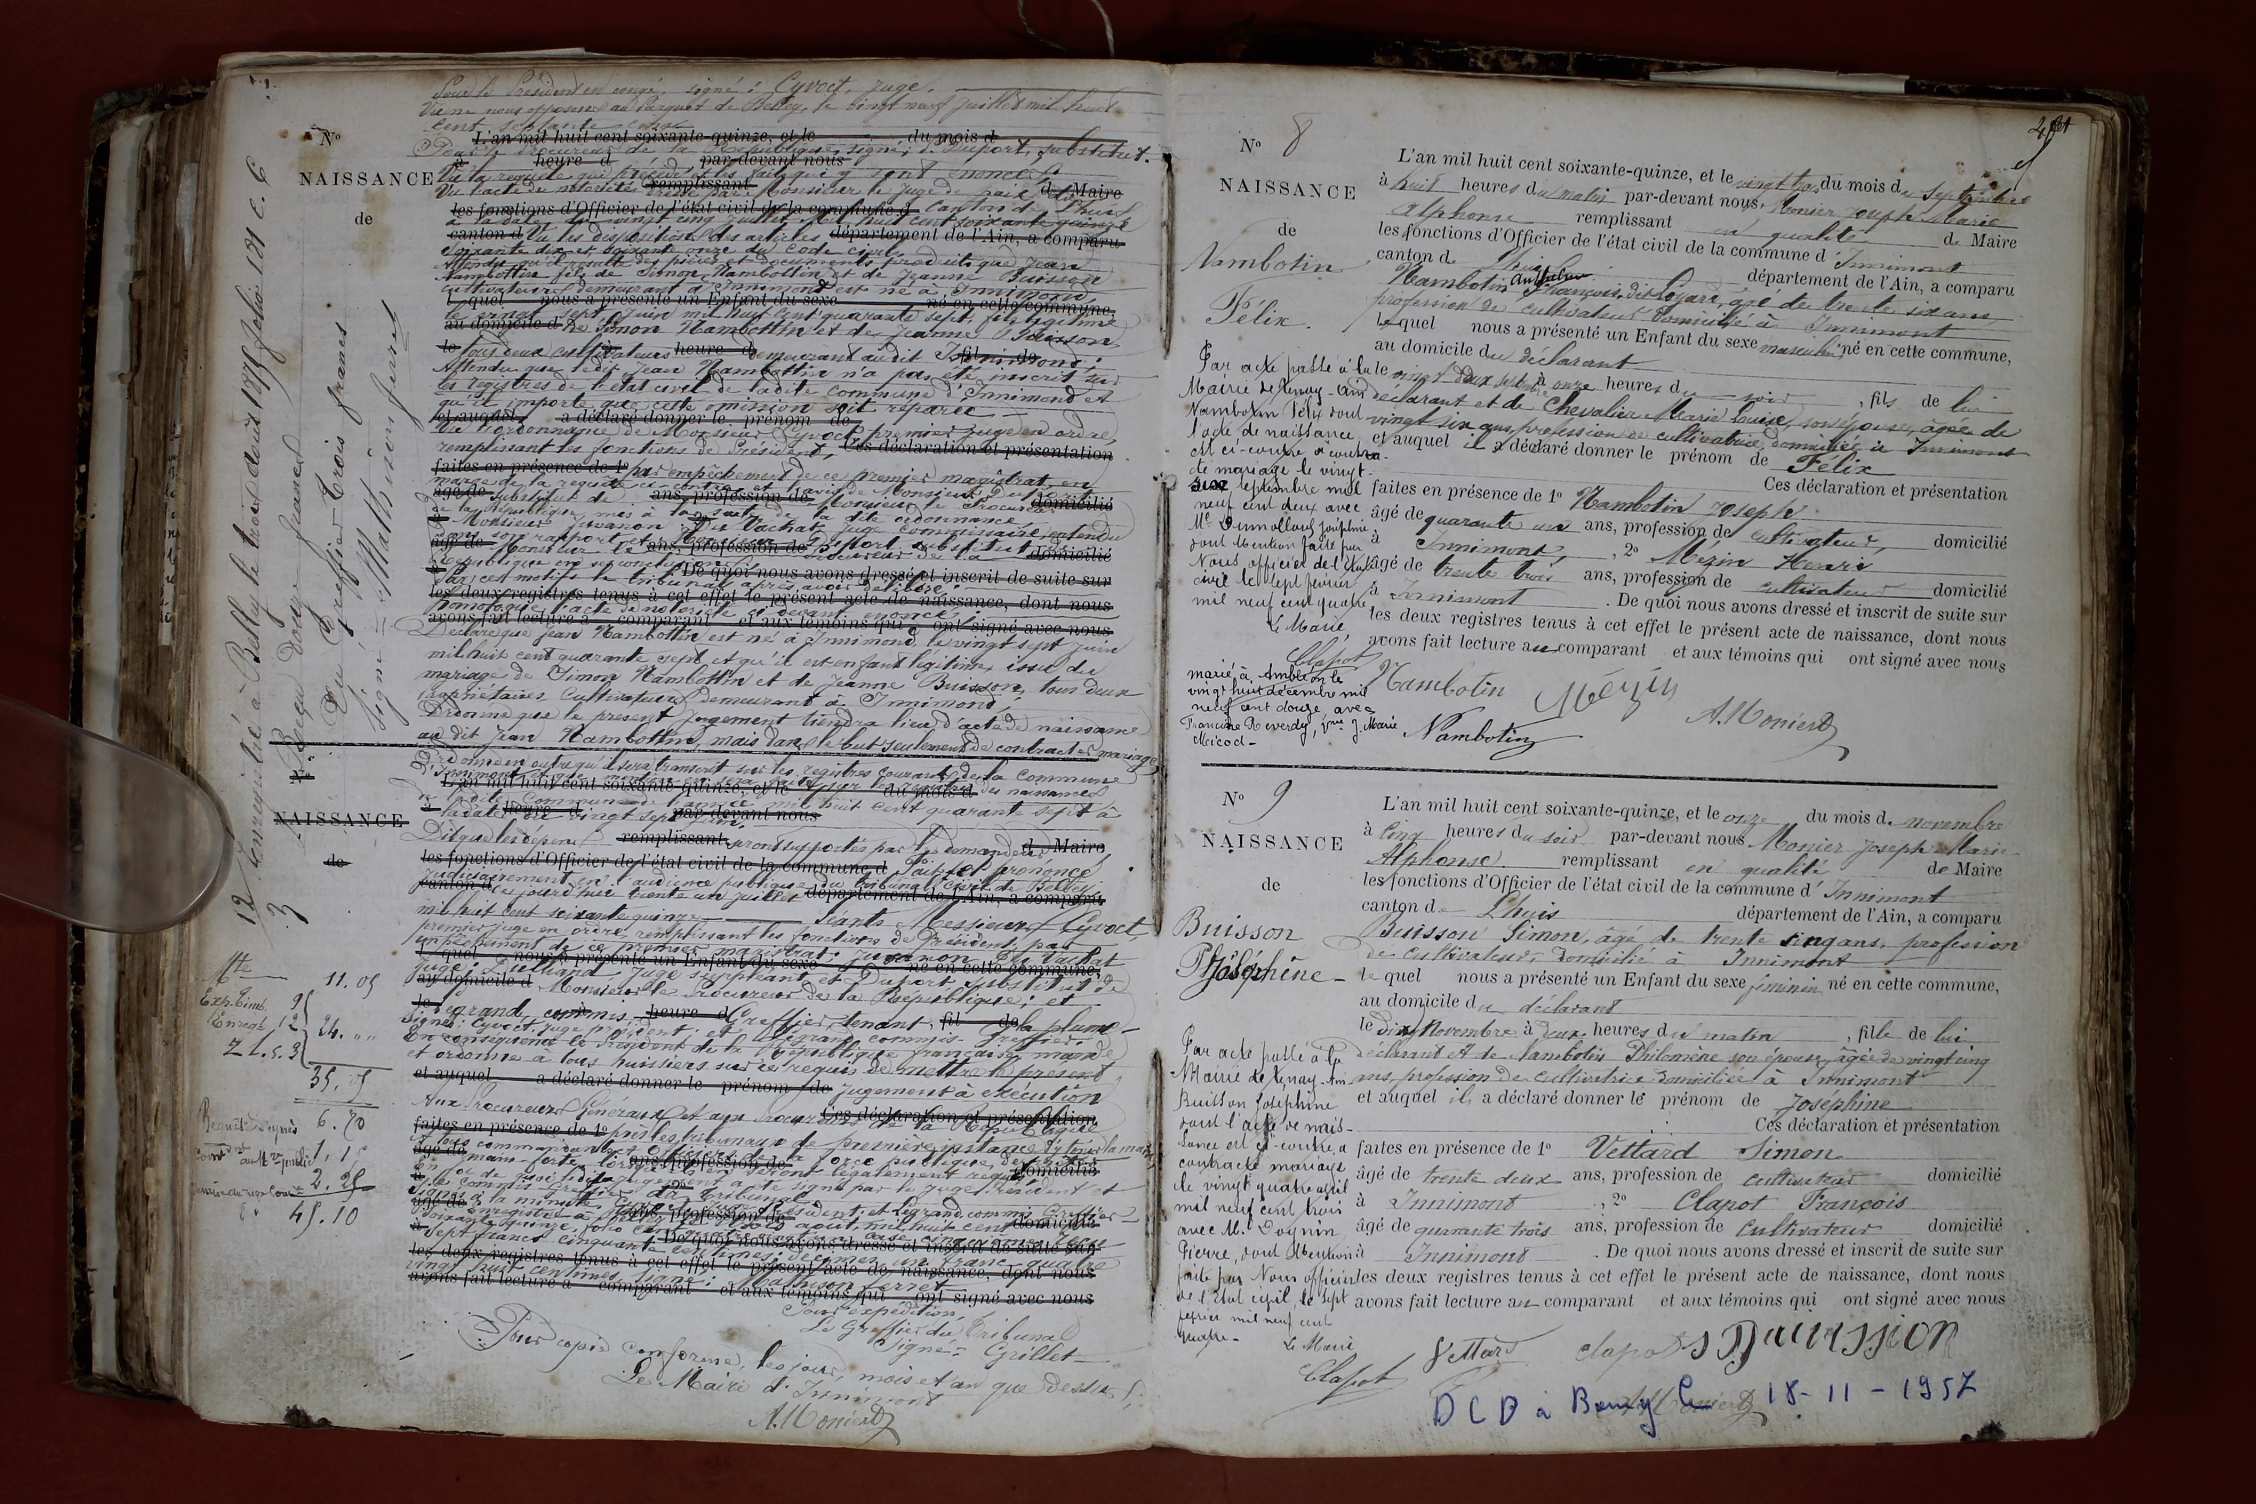 Pour le Président en congé, signé : Cyvoct, juge.
Vu ne nous opposons au Parquet de Belley, le vingt neuf juillet mil huit
cent soixante quinze
L'an mil huit cent soixante-quinze, et le du mois d
Pour le Procureur de la République, signé : Duport, substitut.
à heure d par-devant nous
Vu la requête qui précède et les faits qui y sont énoncés
Vu l'acte de notoriété dressé par Monsieur le juge de paix du
remplissant d Maire
les fonctions d'Officier de l'état civil de la commune d
canton de Lhuis
à la date du vingt cinq juillet mil huit cent soixante quinze
canton d département de l'Ain, a comparu
Vu les dispositions des articles
soixante dix et soixante onze du Code civil
Attendu qu'il résulte des pièces et documents produits que Jean
Nambottin fils de Simon Nambottin et de Jeanne Buisson
cultivateurs demeurant à Innimond est né à Innimond
l quel nous a présenté un Enfant du sexe né en cette commune,
le vingt sept juin mil huit cent quarante sept, fils légitime
au domicile d
de Simon Nambottin et de Jeanne Buisson
le à heure d fil de
tous deux cultivateurs demeurant au dit Innimond ;
Attendu que ledit Jean Nambottin n'a pas été inscrit sur
les registres de l'état civil de ladite commune d'Innimond et
qu'il importe que cette omission soit réparée
et auquel a déclaré donner le prénom de
Vu l'ordonnance de Monsieur Cyvoct, premier juge en ordre,
remplissant les fonctions de Président,
Ces déclaration et présentation
faites en présence de 1º
par empêchement de ce premier magistrat, en
marge de la requête ci-contre et l'avis de Monsieur Duport
âgé de ans, profession de domicilié
substitut de Monsieur le Procureur
de la République, mis à la suite de la dite ordonnance,
Monsieur Juvanon Du Vachat, juge commissaire, entendu
dans son rapport et Monsieur Duport substitut de
âgé de ans, profession de domicilié
Monsieur le Procureur de la
République en ses conclusions
De quoi nous avons dressé et inscrit de suite sur
Par ces motifs le tribunal après avoir délibéré
les deux registres tenus à cet effet le présent acte de naissance, dont nous
homologue l'acte de notoriété ci-devant énoncé
avons fait lecture a comparant et aux témoins qui ont signé avec nous
Déclare que Jean Nambottin est né à Innimond le vingt sept juin
mil huit cent quarante sept et qu'il est enfant légitime issu du
mariage de Simon Nambottin et de Jeanne Buisson, tous deux
propriétaires cultivateurs demeurant à Innimond,
Ordonne que le présent jugement tiendra lieu d'acte de naissance
au dit Jean Nambottin, mais dans le but seulement de contracter mariage
Ordonne en outre qu'il sera transcrit sur les registres courants de la commune
L'an mil huit cent soixante-quinze, et le du mois d
de la dite commune de l'année mil huit cent quarante sept à
à heure d par-devant nous
la date du vingt sept juin,
Dit que les dépens seront supportés par le demandeur
remplissant d Maire
les fonctions d'Officier de l'état civil de la commune d
Fait et prononcé
judiciairement en audience publique du tribunal civil de Belley
canton d département de l'Ain, a comparu
ce jourd'hui trente un juillet
mil huit cent soixante quinze Séants Messieurs Cyvoct,
premier juge en ordre, remplissant les fonctions de Président, par
empêchement de ce premier magistrat, Juvanon Du Vachat
l quel nous a présenté un Enfant du sexe né en cette commune,
juge, juge suppléant et Duport substitut de
au domicile d
Monsieur le Procureur de la République ; et
le à heure d fil de
Legrand, commis Greffier, tenant la plume
Signés : Cyvoct, juge président et Legrand commis Greffier.
En conséquence le Président de la République française mande
et ordonne à tous huissiers sur ce requis de mettre le présent
et auquel a déclaré donner le prénom de
jugement à exécution
Aux Procureurs Généraux et aux Procureurs de la République
Ces déclaration et présentation
faites en présence de 1º
près les tribunaux de première instance d'y tenir la main
à tous commandants et officiers de la force publique de prêter
âgé de ans, profession de domicilié
main forte lorsqu'ils en seront légalement requis
En foi de quoi le présent jugement a été signé par le juge Président et
le commis Greffier du tribunal
âgé de ans, profession de domicilié
De quoi nous avons dressé et inscrit de suite sur
les deux registres tenus à cet effet le présent acte de naissance, dont nous
avons fait lecture a comparant et aux témoins qui ont signé avec nous
Pour expédition,
Le Greffier du Tribunal
Signé : Grillet
Pour copie conforme, les jour, mois et an que dessus.
Le Maire d'Innimont
A. Monier
Nº
NAISSANCE
de
Enregistré à Belley le trois août 1875 folio 121 c. 6
Reçu douze francs
Du Greffier trois francs
Signé = Mathéron ferret
12
3
Nº
NAISSANCE
de
11. 05
24. " "
35. 05
6. 70
1. 15
2. 25
45. 10
Nº 8
NAISSANCE
de
Nambotin
Félix.
L'an mil huit cent soixante-quinze, et le vingt trois du mois de Septembre
à huit heures du matin par-devant nous, Monier Joseph Marie
Alphonse remplissant en qualité de Maire
les fonctions d'Officier de l'état civil de la commune d'Innimont
canton de Lhuis département de l'Ain, a comparu
Nambotin Anthelme François, dit Loyard, âgé de trente six ans
profession de cultivateur domicilié à Innimont
lequel nous a présenté un Enfant du sexe masculin né en cette commune,
au domicile du déclarant
le vingt deux sept. à onze heures du soir, fils de lui
déclarant et de Chevalier Marie Louise, son épouse, âgée de
vingt six ans, profession de cultivatrice, domiciliée à Innimont
et auquel il a déclaré donner le prénom de Félix
Ces déclaration et présentation
faites en présence de 1º Nambotin Joseph
âgé de quarante un ans, profession de cultivateur, domicilié
à Innimont, , 2º Mézin Henri
âgé de trente trois ans, profession de cultivateur domicilié
à Innimont . De quoi nous avons dressé et inscrit de suite sur
les deux registres tenus à cet effet le présent acte de naissance, dont nous
avons fait lecture au comparant et aux témoins qui ont signé avec nous
Nambotin Mézin
A. Monier
Nambotin
Par acte passé à la
Mairie de Tenay (Ain)
Nambotin Félix dont
l'acte de naissance
est ci-contre a contrac-
té mariage le vingt-
six septembre mil
neuf cent deux avec
Mlle Dumollard Joséphine
dont Mention faite par
Nous officier de l'état
civil le sept février
mil neuf cent quatre
Le Maire,
Clapot
marié à Ambléon le
vingt huit décembre mil
neuf cent douze avec
Francine Reverdy, vve J. Marie
Micoud -
Nº 9
NAISSANCE
de
Buisson
Joséphine -
L'an mil huit cent soixante-quinze, et le onze du mois de novembre
à cinq heures du soir par-devant nous Monier Joseph Marie
Alphonse remplissant en qualité de Maire
les fonctions d'Officier de l'état civil de la commune d'Innimont
canton de Lhuis département de l'Ain, a comparu
Buisson Simon, âgé de trente cinq ans, profession
de cultivateur, domicilié à Innimont
lequel nous a présenté un Enfant du sexe féminin né en cette commune,
au domicile du déclarant
le dix Novembre à deux heures du matin , fille de lui
déclarant et de Nambotin Philomène son épouse, âgée de vingt cinq
ans, profession de cultivatrice domiciliée à Innimont
et auquel il a déclaré donner le prénom de Joséphine
Ces déclaration et présentation
faites en présence de 1º Vettard Simon
âgé de trente deux ans, profession de cultivateur domicilié
à Innimont , 2º Clapot François
âgé de quarante trois ans, profession de cultivateur domicilié
à Innimont . De quoi nous avons dressé et inscrit de suite sur
les deux registres tenus à cet effet le présent acte de naissance, dont nous
avons fait lecture au comparant et aux témoins qui ont signé avec nous
Vettard Clapot
A. Monier
DCD à le 18-11-1957
Par acte passé à la
Mairie de Tenay Ain
Buisson Joséphine
dont l'acte de nais-
sance est ci-contre a
contracté mariage
le vingt quatre avril
mil neuf cent trois
avec M. Cognin
Pierre, dont Mention
faite par Nous officier
de l'état civil, le sept
février mil neuf cent
quatre -
Le Maire
Clapot